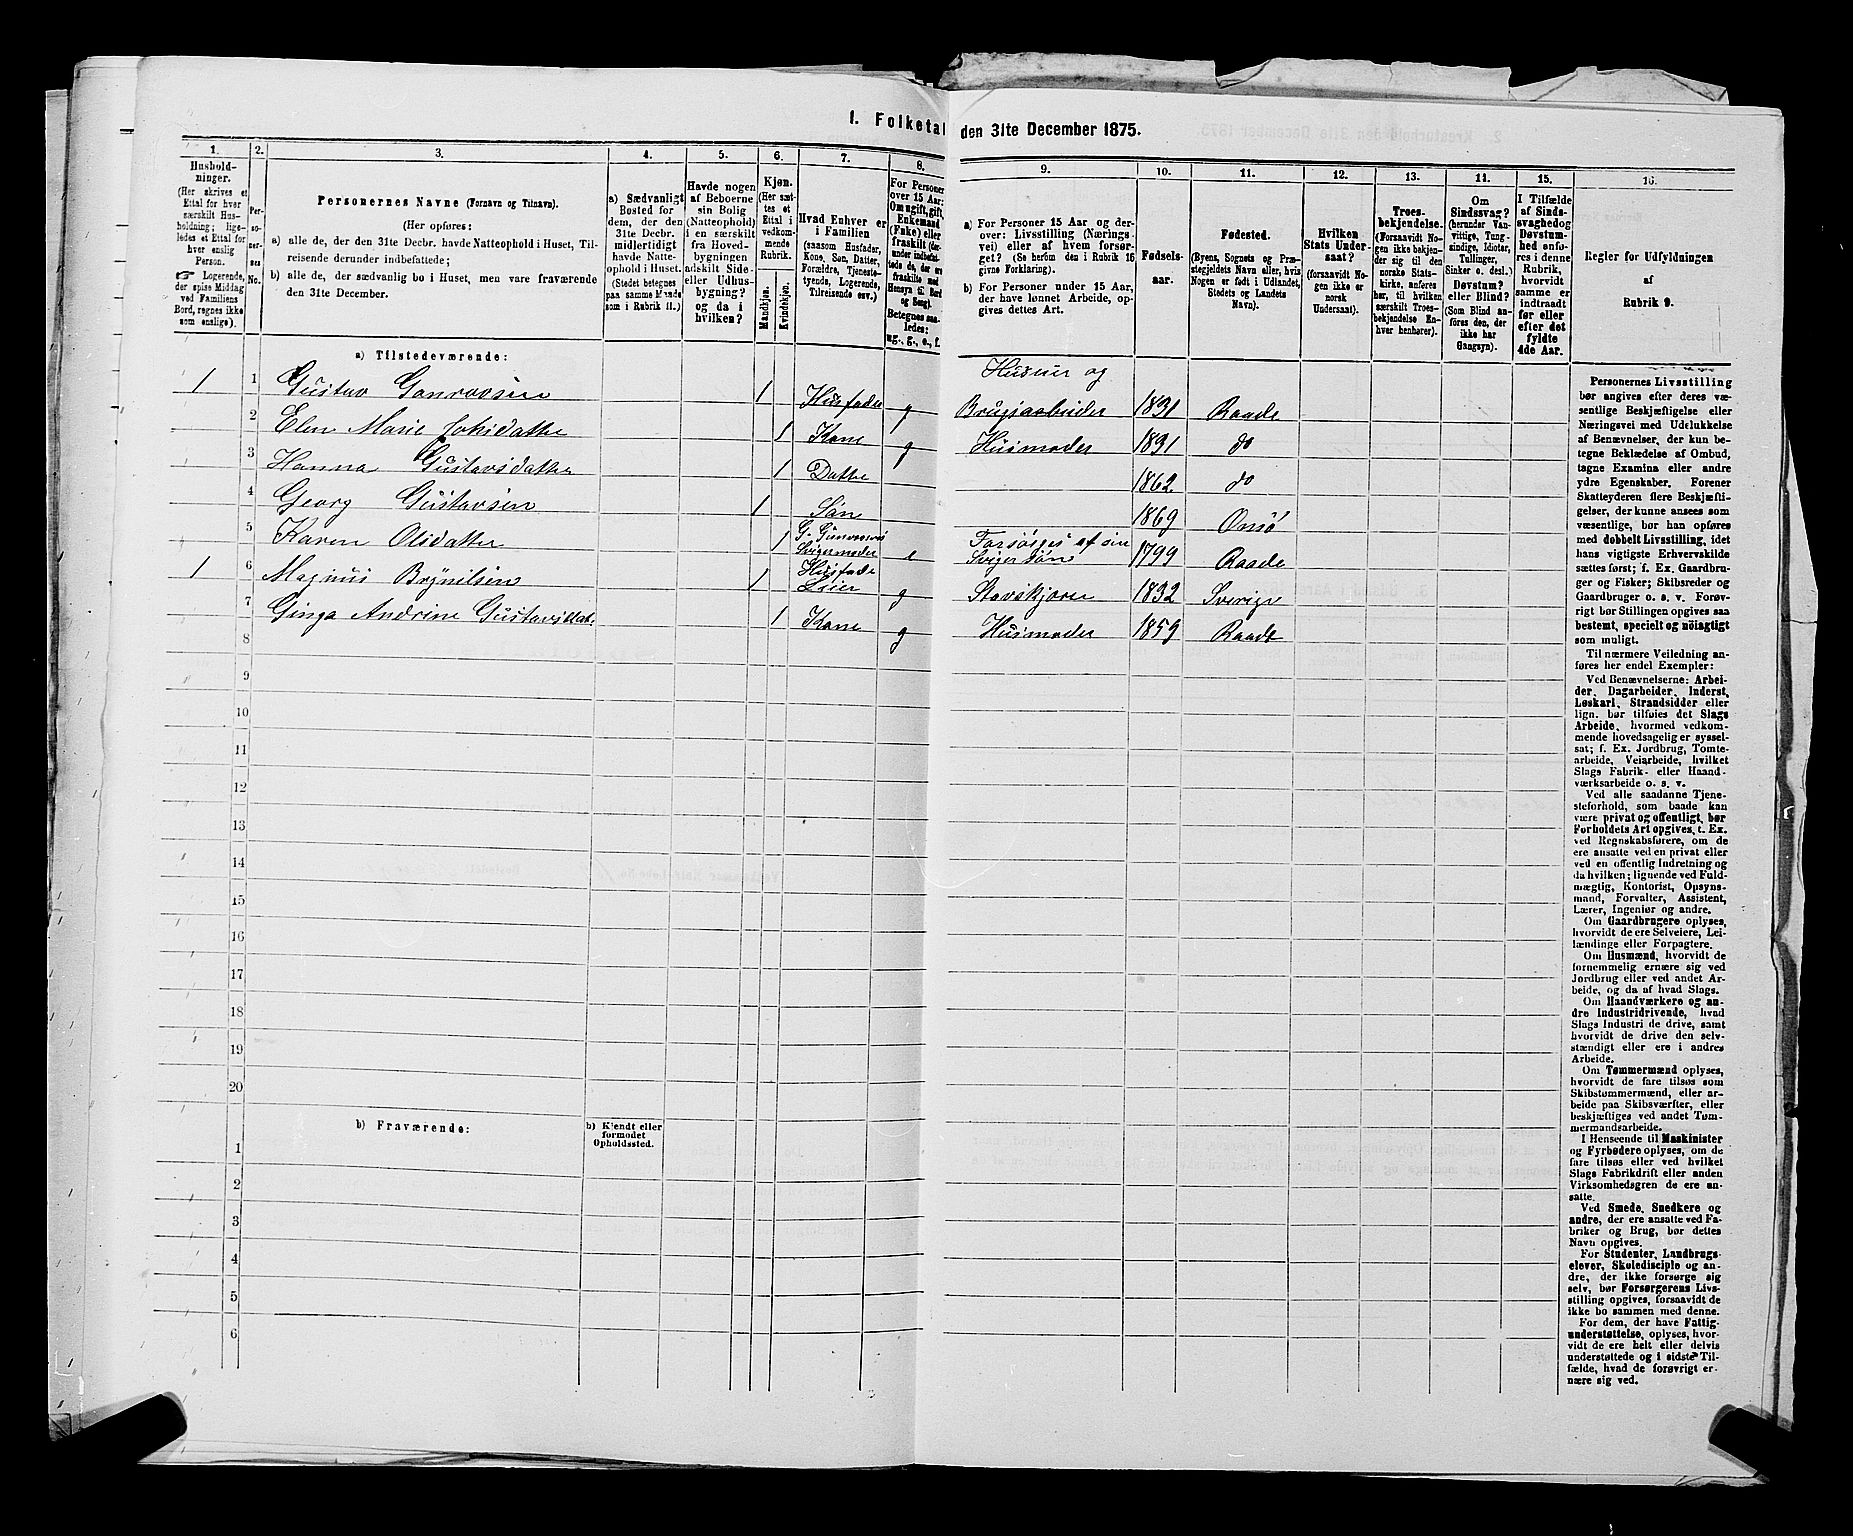 1. Folketal den 31te December 1875.
1. 2. 3. 4. 5. 6. 7. 8. 9. 10. 11. 12. 13. 14. 15. 16.
Husholdninger.
(Her skrives et
Ettal for hver
særskilt Husholdning;
ligeledes et Ettal for
hver enslig
Person.
☞ Logerende,
der spise Middag
ved Familiens
Bord, regnes ikke
som enslige).
Personernes No.
Personernes Navne (Fornavn og Tilnavn).
(Her opføres:
a) alle de, der den 31te Decbr. havde Natteophold i Huset, Tilreisende derunder indbefattede;
b) alle de, der sædvanlig bo i Huset, men vare fraværende
den 31te December.
a) Sædvanligt
Bosted for
dem, der den
31te Decbr.
midlertidigt
havde Natteophold i Huset.
(Stedet betegnes
paa samme Maade
som i Rubrik 11.)
Havde nogen
af Beboerne
sin Bolig
(Natteophold)
i en særskilt
fra Hovedbygningen
adskilt Side-
eller Udhusbygning?
og da i
hvilken?
Kjøn.
(Her sættes et
Ettal i
vedkommende
Rubrik.
Mandkjøn.
Kvindekjøn.
Hvad Enhver er
i Familien
(saasom Husfader,
Kone, Søn, Datter,
Forældre, Tjenestetyende, Logerende,
Tilreisende osv.)
For Personer
over 15 Aar:
Om ugift, gift,
Enkemand
(Enke) eller
fraskilt
Betegnes saaledes:
ug., g., e., f.
a) For Personer 15 Aar og derover: Livsstilling (Næringsvei) eller af hvem forsørget? (Se herom den i Rubrik 16
givne Forklaring).
b) For Personer under 15 Aar,
der have lønnet Arbeide, opgives dettes Art.
Fødselsaar.
Fødested.
(Byens, Sognets og Præstegjeldets Navn eller, hvis
Nogen er født i Udlandet,
Stedets og Landets
Navn).
Hvilken
Stats Undersaat?
(forsaavidt Nogen ikke er
norsk
Undersaat).
Troesbekjendelse.
(Forsaavidt Nogen ikke bekjender sig til den
norske Statskirke, anføres
her, til hvilken
særskilt Troesbekjendelse Enhver henhører).
Om
Sindssvag?
(herunder Vanvittige, Tungsindige, Idioter,
Tullinger,
Sinker o. desl.)
Døvstum?
eller Blind?
(Som Blind anføres den, der
ikke har
Gangsyn).
I Tilfælde
af Sindssvaghed og
Døvstumhed anføres i denne
Rubrik,
hvorvidt
samme er
indtraadt
før eller
efter det
fyldte
4de Aar.
Regler for Udfyldningen
af
Rubrik 9.
a) Tilstedeværende:
1 1 Gustav 1 Husfader g Husm og Brugsarbeider 1831 Raade
2 Elen Marie 1 Kone g Husmoder 1831 do
3 Hanna Gustavsdatter 1 Datter 1862. do
4 Georg Gustavsen 1 Søn 1869 Onsø
5 Karen Olsdatter 1 G. Svigermoder e Forsørges af sin Svigersøn 1799 Raade
1 6 Magnus Brynilsen 1 Husfader Leier g 1832 Sverige
7 Ginga Andrine 1 Kone g Husmoder 1859 Raade
8
9
10
11
12
13
14
15
16
17
18
19
20
b) Fraværende:
b) Kjendt eller
formodet
Opholdssted.
1
2
3
4
5
6
Personernes Livsstilling
bør angives efter deres væsentlige Beskjæftigelse eller
Næringsvei med Udelukkelse
af Benævnelser, der kun betegne Beklædelse af Ombud,
tagne Examina eller andre
ydre Egenskaber. Forener
Skatteyderen flere Beskjæftigelser, der kunne ansees som
væsentlige, bør han opføres
med dobbelt Livsstilling, idet
hans vigtigste Erhvervskilde
sættes først; f. Ex. Gaardbruger og Fisker; Skibsreder og
Gaardbruger o. s. v. Forøvrigt bør Stillingen opgives saa
bestemt, specielt og nöiagtigt
som muligt.
Til nærmere Veiledning anføres her endel Exempler:
Ved Benævnelserne: Arbeider, Dagarbeider, Inderst,
Løskarl, Strandsidder eller
lign. bør tilføies det Slags
Arbeide, hvormed vedkommende hovedsagelig er sysselsat; f. Ex. Jordbrug, Tomtearbeide, Veiarbeide, hvilket
Slags Fabrik- eller Haandværksarbeide o. s. v.
Ved alle saadanne Tjenesteforhold, som baade kan
være privat og offentligt, bør
Forholdets Art opgives, t. Ex.
ved Regnskabsførere, om de
ere ansatte ved en privat eller
ved en offentlig Indretning og
da hvilken; lignende ved Fuldmægtig, Kontorist, Opsynsmand, Forvalter, Assistent,
Lærer, Ingeniør og andre.
Om Gaardbrugere oplyses,
hvorvidt de ere Selveiere, Leilændinge eller Forpagtere.
Om Husmænd, hvorvidt de
fornemmelig ernære sig ved
Jordbrug eller ved andet Arbeide, og da af hvad Slags.
Om Haandværkere og andre Industridrivende, hvad
Slags Industri de drive, samt
hvorvidt de drive den selvstændigt eller ere i andres
Arbeide.
Om Tømmermænd oplyses,
hvorvidt de fare tilsøs som
Skibstømmermænd, eller arbeide paa Skibsværfter, eller
beskjæftiges ved andet Tømmermandsarbeide.
I Henseende til Maskinister
og Fyrbødere oplyses, om de
fare tilsøs eller ved hvilket
Slags Fabrikdrift eller anden
Virksomhedsgren de ere ansatte.
Ved Smede, Snedkere og
andre, der ere ansatte ved Fabriker og Brug, bør dettes
Navn opgives.
For Studenter, Landbrugselever, Skoledisciple og andre, der ikke forsørge sig
selv, bør Forsørgerens Livsstilling opgives, forsaavidt de
ikke bo sammen med denne.
For dem, der have Fattigunderstøttelse, oplyses, hvorvidt de ere helt eller delvis
understøttede og i sidste Tilfælde, hvad de forøvrigt ernære sig ved.